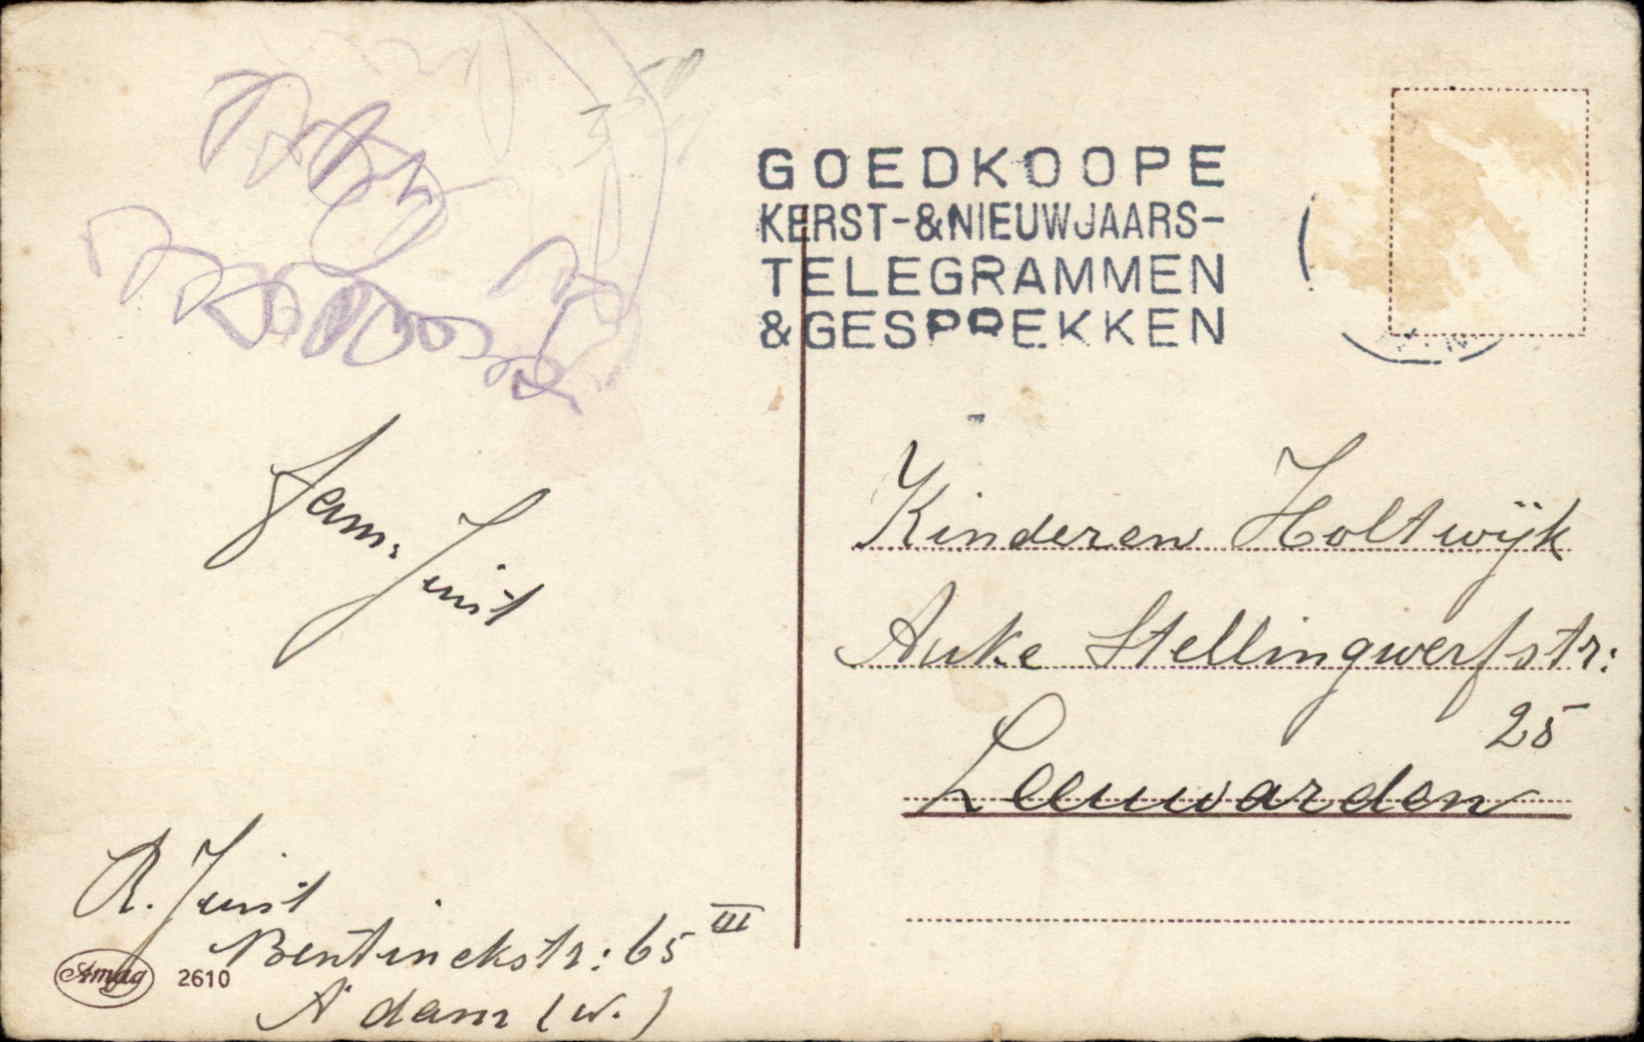 GOEDKOOPE
KERST-&NIEUWJAARS-
TELEGRAMMEN
&GESPREKKEN
Fam. Juist
Kinderen Holtwijk
Auke Stellingwerfstr:
25
Leeuwarden
R. Juist
Bentinckstr: 65 III
A'dam (W.)
Amag 2610